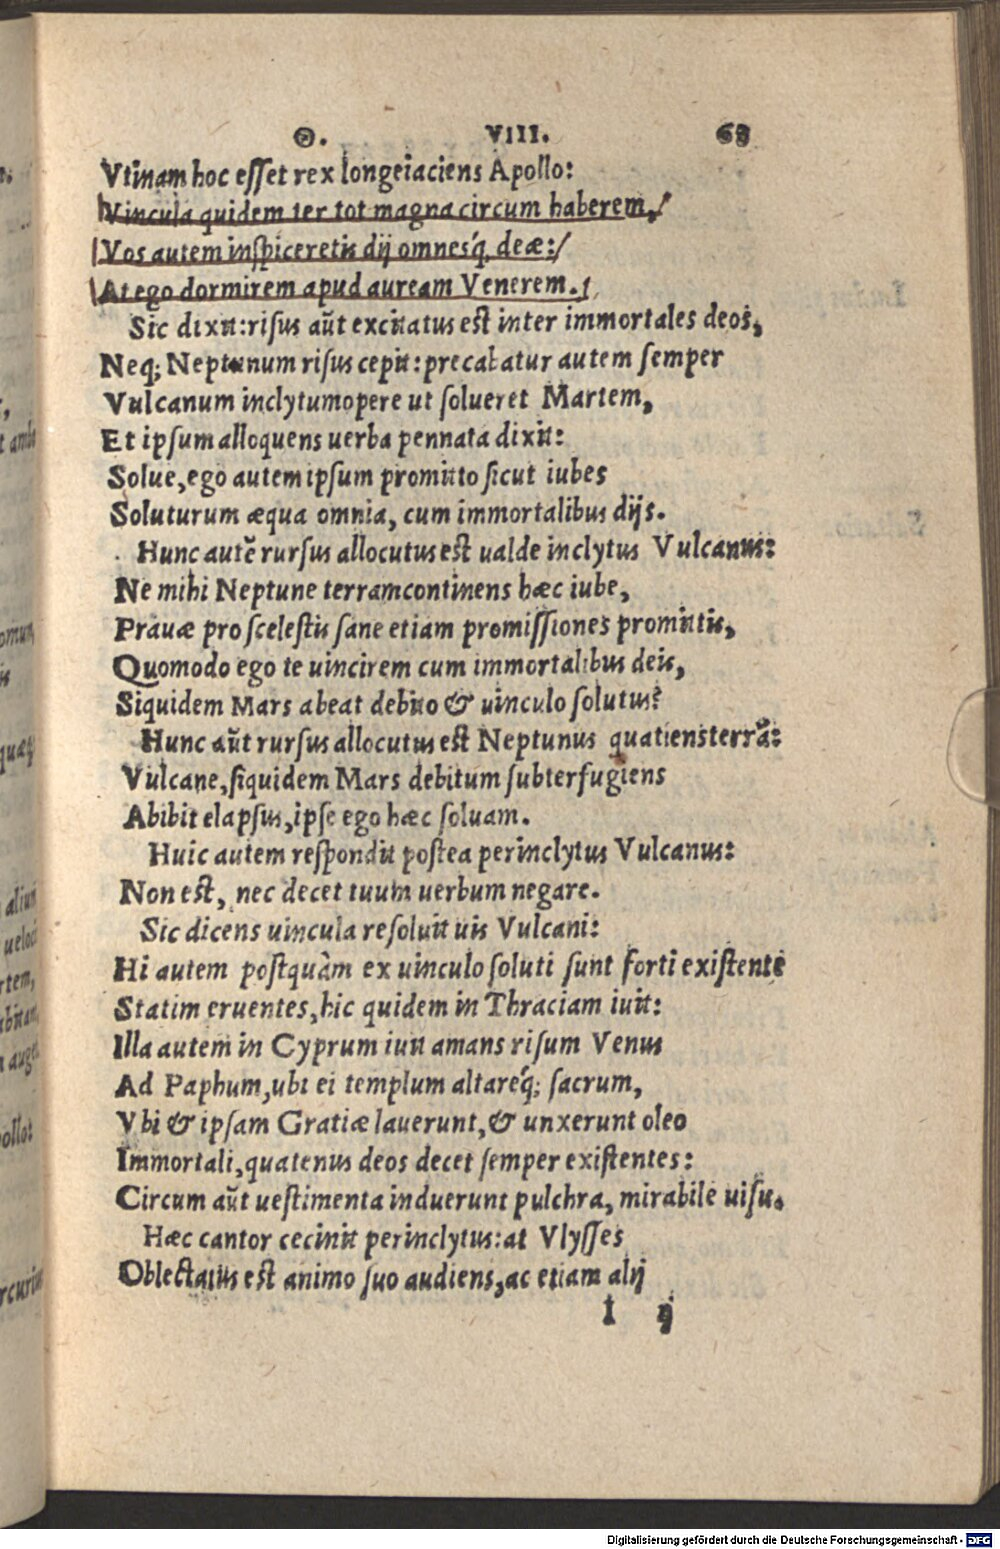 Θ. VIII. 68
Vtinam hoc eſſet rex longeiaciens Apollo:
Vincula quidem ter tot magna circum haberem,
Vos autem inſpiceretis dij omnesq́; deæ:
At ego dormirem apud auream Venerem.
Sic dixit: riſus aūt excitatus eſt inter immortales deos,
Neq; Neptunum riſus cepit: precabatur autem ſemper
Vulcanum inclytumopere ut ſolueret Martem,
Et ipſum alloquens uerba pennata dixit:
Solue, ego autem ipſum promitto ſicut iubes
Soluturum æqua omnia, cum immortalibus dijs.
Hunc autē rurſus allocutus eſt ualde inclytus Vulcanus:
Ne mihi Neptune terramcontinens hæc iube,
Prauæ pro ſceleſtis ſane etiam promiſſiones promittis,
Quomodo ego te uincirem cum immortalibus deis,
Siquidem Mars abeat debito & uinculo ſolutus?
Hunc aūt rurſus allocutus eſt Neptunus quatiensterrā:
Vulcane, ſiquidem Mars debitum ſubterfugiens
Abibit elapſus, ipſe ego hæc ſoluam.
Huic autem reſpondit poſtea perinclytus Vulcanus:
Non eſt, nec decet tuum uerbum negare.
Sic dicens uincula reſoluit uis Vulcani:
Hi autem poſtquàm ex uinculo ſoluti ſunt forti exiſtente
Statim eruentes, hic quidem in Thraciam iuit:
Illa autem in Cyprum iuit amans riſum Venus
Ad Paphum, ubi ei templum altareq́; ſacrum,
Vbi & ipſam Gratiæ lauerunt, & unxerunt oleo
Immortali, quatenus deos decet ſemper exiſtentes:
Circum aūt ueſtimenta induerunt pulchra, mirabile uiſu.
Hæc cantor cecinit perinclytus: at Vlyſſes
Oblectatus eſt animo ſuo audiens, ac etiam alij
I ij
Digitalisierung gefördert durch die Deutsche Forschungsgemeinschaft - DFG